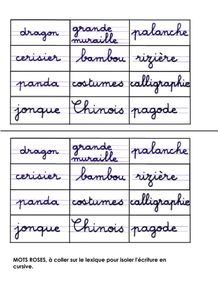 dragon grande muraille palanche
cerisier bambou rizière
panda costumes calligraphie
jonque Chinois pagode
dragon grande muraille palanche
cerisier bambou rizière
panda costumes calligraphie
jonque Chinois pagode
MOTS ROSES, à coller sur le lexique pour isoler l'écriture en
cursive.